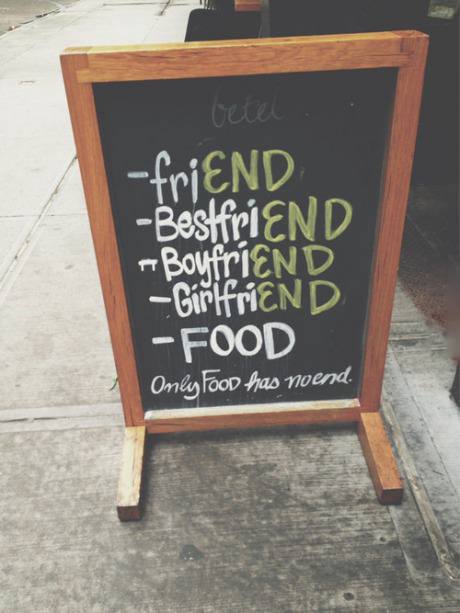 betel
-friEND
-BestfriEND
-BoyfriEND
-GirlfriEND
-FOOD
Only Food has no end.